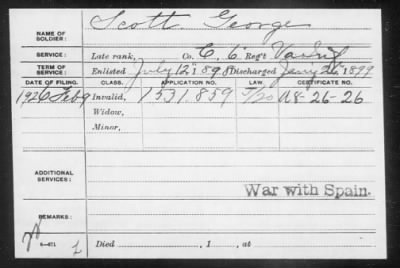 NAME OF SOLDIER: Scott George
SERVICE: Late rank, Co. C, 6" Reg't Va Inf
TERM OF SERVICE: Enlisted July 12, 1898 Discharged Jan'y 26, 1899
DATE OF FILING. CLASS. APPLICATION NO. LAW. CERTIFICATE NO.
1926 Feb 9 Invalid, 1531.859 5/20 A 8-26-26
Widow,
Minor,
ADDITIONAL SERVICES:
War with Spain.
REMARKS:
Died , 1 , at